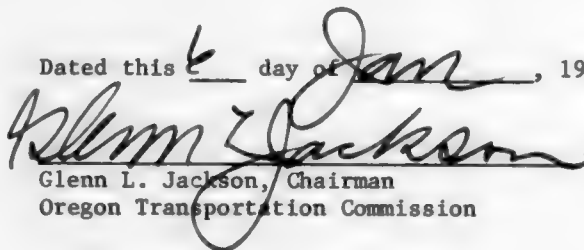 Dated this 6 day of Jan, 19
Glenn L. Jackson
Glenn L. Jackson, Chairman
Oregon Transportation Commission